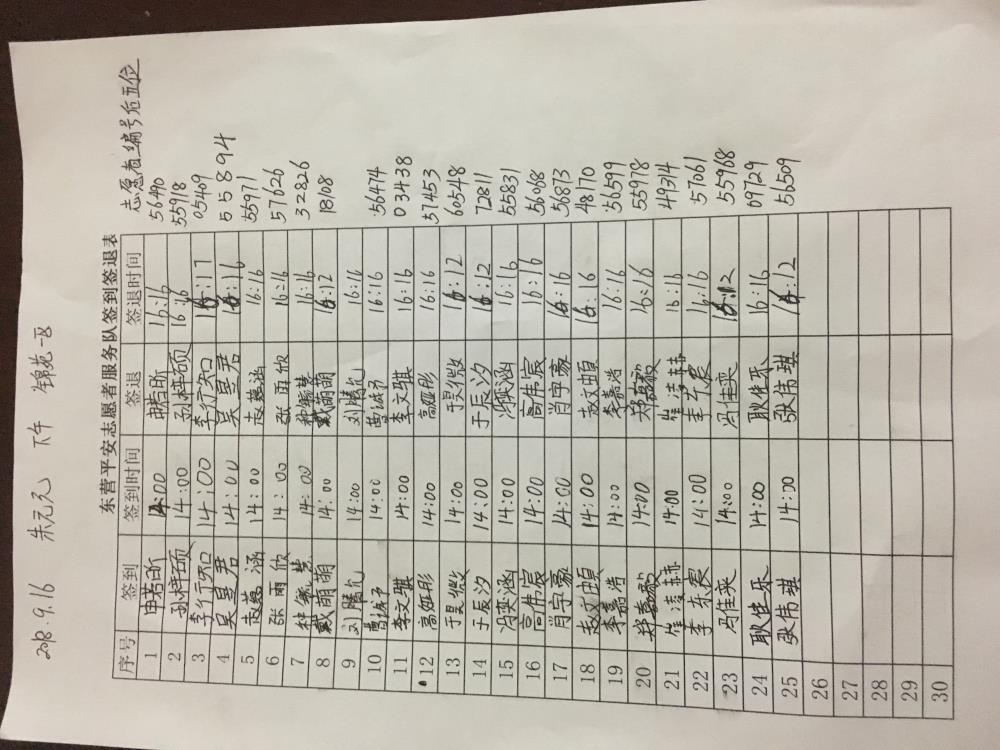 2018.9.16 朱元元 下午 锦苑一区
东营平安志愿者服务队签到签退表 志愿者编号后五位
序号 签到 签到时间 签退 签退时间
1 申若昕 14:00 申若昕 16:16 56490
2 孙梓硕 14:00 孙梓硕 16:16 55918
3 李行知 14:00 李行知 16:17 05409
4 吴昱君 14:00 吴昱君 16:16 55894
5 赵慈涵 14:00 赵慈涵 16:16 55971
6 张雨欣 14:00 张雨欣 16:16 57626
7 14:00 16:16 32826
8 戴萌萌 14:00 戴萌萌 16:12 18108
9 刘腾允 14:00 刘腾允 16:16
10 曹诚予 14:00 曹诚予 16:16 56474
11 李文骐 14:00 李文骐 16:16 03438
12 高娅彤 14:00 高娅彤 16:16 37453
13 于昊 14:00 于昊 16:12 60548
14 于辰汐 14:00 于辰汐 16:12 72811
15 冯奕涵 14:00 冯奕涵 16:16 55831
16 高伟宸 14:00 高伟宸 16:16 56068
17 肖宇豪 14:00 肖宇豪 16:16 56873
18 赵文 14:00 赵文 16:16 48170
19 李嘉浩 14:00 李嘉浩 16:16 56599
20 郑嘉毅 14:00 郑嘉毅 16:16 55978
21 崔凌赫 14:00 崔凌赫 16:16 49314
22 李东宸 14:00 李东宸 16:16 57061
23 冯佳奕 14:00 冯佳奕 16:12 55968
24 耿佳乐 14:00 耿佳乐 16:16 09729
25 张伟琪 14:00 张伟琪 16:12 56509
26
27
28
29
30